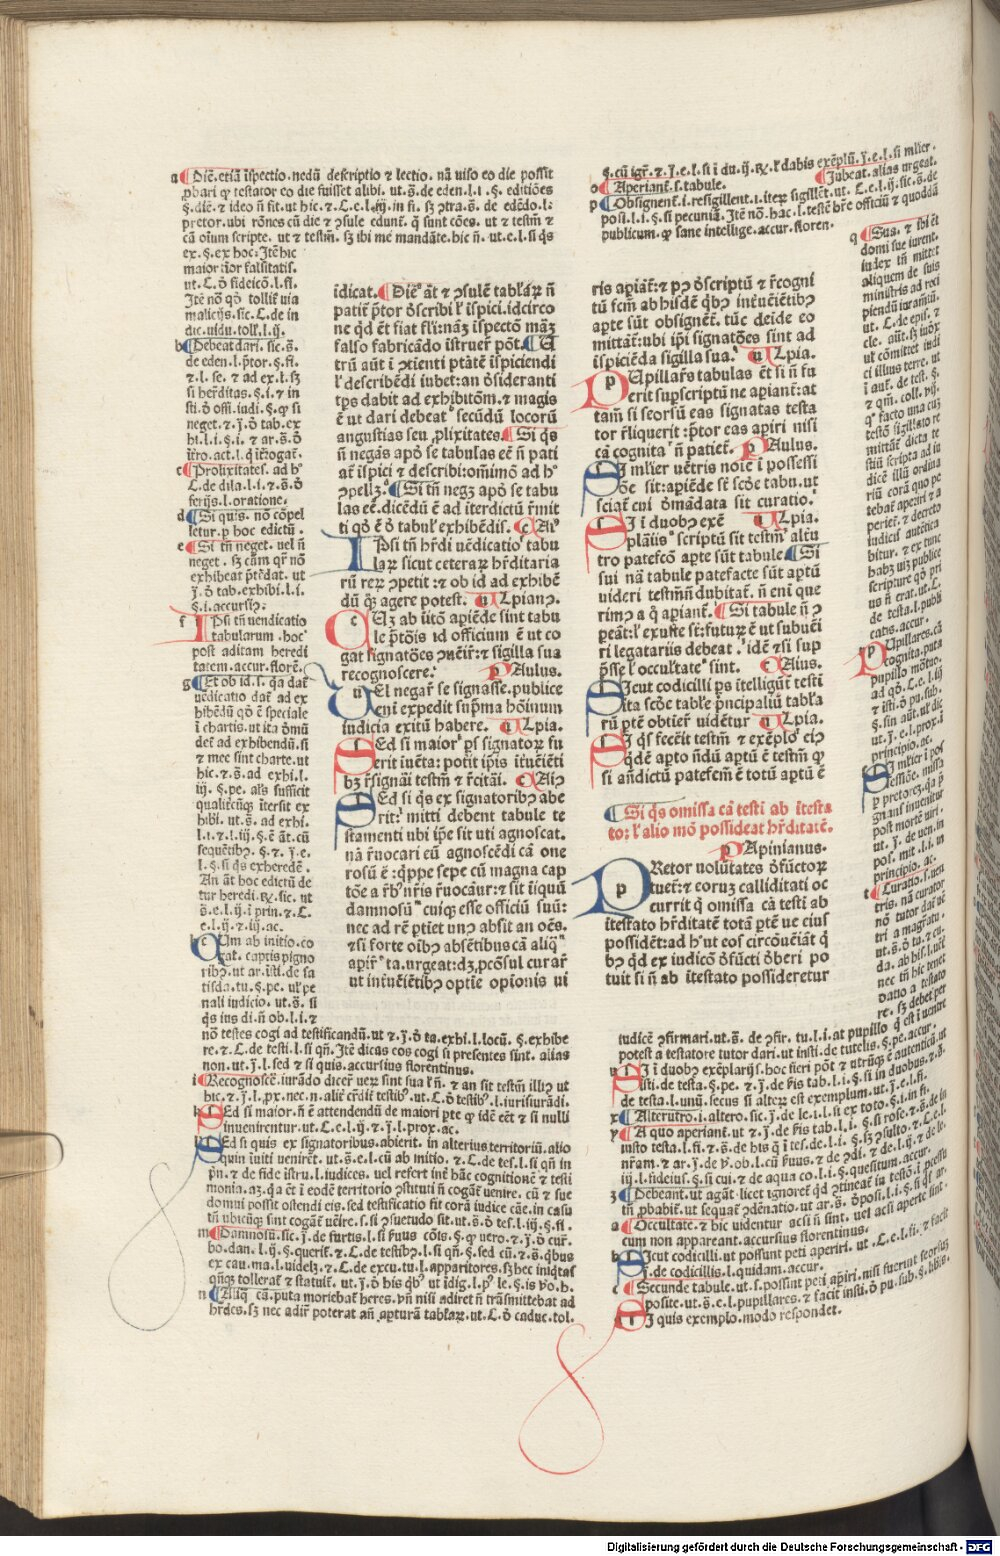 a Diē. etiā īspectio. nedū descriptio ⁊ lectio. nā uiso eo die possit
ꝓbari ꝙ testator eo die fuisset alibi. ut. s̄. de eden. l. i. §. editiōes
§. diē. ⁊ ideo
pretor. ubi rōnes cū die ⁊ ꝯsule edunt. ꝗ sunt cōes. ut ⁊ testm̄ ⁊
ex. §. ex hoc. Itē hic
maior timor falsitatis.
ut. C. ō fideicō. l. fi.
Itē nō ꝙ̄ tollit̄ uia
malicijs. sic. C. de in
dic. uidu. toll. l. ij.
b Debeat dari. sic. s̄.
de eden. l. p̄tor. §. fi.
⁊ l. se. ⁊ ad ex. l. sꝫ
si her̄ditas. §. i. ⁊ in
sti. ō offi. iudi. §. ꝙ si
neget. ⁊. j. ō tab. ex
hi. l. i. §. i. ⁊ ar. s̄. ō
c Prolixitates. ad hᵉ
C. de dila. l. i. ⁊ s̄. ō
ferijs. l. oratione.
d Si quis. nō cōpel
letur. p hoc edictū.
e Si tn̄ neget. uel n̄
neget. sꝫ cām qr̄ nō
exhibeat p̄tēdat. ut
j. ō tab. exhibi. l. i.
§. i. accursiꝰ.
f IPsi tn̄ uendicatio
tabularum. hocᵉ
post aditam heredi
tatem. accur. florē.
g Et ob id. s. qa dat̄
uēdicatio dat̄ ad ex
hibēdū qō ē speciale
ī chartis. ut ita ōmū
det̄ ad exhibendū. si
⁊ mee sint charte. ut
hic. ⁊. s̄. ad exhi. l.
iij. §. pe. als̄ sufficit
qualitcūqꝫ itersit ex
hibi. ut. s̄. ad exhi.
l. i. ⁊. l. iij. §. ē āt. cū
sequētibꝰ. §. ⁊. j. e.
l. §. si q̄s exheredē.
An āt hoc edictū de
tur heredi. ꝶ. sic. ut
s̄. e. l. ij. ī prin. ⁊. C.
e. l. ij. ⁊ iij. ac.
h QUm ab initio. co
rat. captis pigno
ribꝰ. ut ar. isti. de sa
tisda. tu. §. pe. ul̄ pe
nali iudicio. ut. s̄. si
q̄s ius di. n̄ ob. l. i. ⁊
nō testes cogi ad testificandū. ut ⁊. j. ō ta. exhi. l. locū. §. exhibe
re. ⁊. C. de testi. l. si qn̄. Itē dicas eos cogi si presentes sint. alias
non. ut. j. l. sed ⁊ si quis. accursius florentinus.
i Recognoscē. iurādo dicer̄ uer̄ sint sua l̄ n̄. ⁊ an sit testm̄ illiꝰ ut
hic. ⁊. j. l. ꝓx. nec. n. alit̄ cr̄dit̄ testibꝰ. ut. C. ō testibꝰ. l. iurisiurādi.
k SEd si maior. n̄ ē attendendū de maiori pte ꝙ idē eēt ⁊ si nulli
inuenirentur. ut. C. e. l. ij. ⁊. j. l. prox. ac.
l SEd si quis ex signatoribus abierit. in alterius territoriū. alio
quin īuiti uenirēt. ut. s̄. e. l. cū ab initio. ⁊. C. de tes. l. si qn̄ in
pn̄. ⁊ de fide istru. l. iudices. uel refert int̄ hāc cognitionē ⁊ testi
monia. aꝫ. qa ēt ī eodē territorio ꝯstituti n̄ cogāt̄ uenire. cū ⁊ sue
domui possit ostendi eis. sed testificatio fit corā iudice cāe. in casu
tn̄ ubicūqꝫ sint cogāt̄ uēire. s. si ꝯsuetudo sit. ut. s̄. ō tes. l. iij. §. fi.
m Damnosū. sic. j. de furtis. l. si s̄uus cōis. §. ꝙ uero. ⁊. j. ō cur̄.
bo. dan. l. ij. §. querit̄. ⁊. C. de testibꝰ. l. si qn̄. §. sed cū. ⁊. s̄. q̄bus
ex cau. ma. l. uidelꝫ. ⁊. C. de excu. tu. l. apparitores. sꝫ hec iniq̄tas
n Aliqᵉ cā. puta moriebat̄ heres. uñ nisi adiret n̄ trāsmittebat ad
hr̄des. sꝫ nec adir̄ poterat añ aꝑturā tablaꝝ. ut. C. ō caduc. tol.
idicat. Diēᵉ āt ⁊ ꝯsulē tabl̄aꝝ n̄
patit̄ p̄tor ō̄scribi l̄ īspici. idcirco
ne qd̄ ēt fiat fl̄i: nāꝫ īspectō māꝫ
falso fabricādo īstruer̄ pōt. U
trū aūt ī ꝯtienti ptātē īspiciendi
l̄ describēdi iubet: an ō̄sideranti
tꝑs dabit ad exhibitōm. ⁊ magis
ē ut dari debeatᵉ secūdū locorū
angustias seu ꝓlixitates. Si q̄s
n̄ negās apō se tabulas eē n̄ pati
at̄ īspici ⁊ describi: om̄imō ad hᵉ
ꝯpellꝫ. Si tn̄ negꝫ apō se tabu
las eē. dicēdū ē ad iterdictū r̄mit
ti qō ē ō tabul̄ exhibēdis. c Aiꝰ
IPsi tn̄ hr̄di uēdicatioᵉ tabu
laꝝ sicut ceteraꝝ hr̄ditaria
rū reꝝ ꝯpetit: ⁊ ob id ad exhibē
dū qꝫ agere potest. u Lpianꝰ.
CUꝫ ab iītō apiēde sint tabu
le p̄tōis id officium ē ut co
gat signatōes ꝯuēir̄: ⁊ sigilla sua
recognoscere. p Aulus.
UEl negar̄ se signasse. publice
eni expedit sup̄ma hoīnum
iudicia exitū habere. u Lpia.
SEd si maiorᵉ ps̄ signatoꝝ fu
erit iuēta: potit̄ ip̄is ituēiēti
bꝫ r̄signāi testm̄ ⁊ r̄citāi. c Aiꝰ
SEd si q̄s ex signatoribꝰ abe
rit: mitti debent tabule te
stamenti ubi ip̄e sit uti agnoscat.
nā r̄uocari eū agnoscēdi cā one
rosū ē: qꝑpe sepe cū magna cap
tōe a r̄bꝰ nr̄is r̄uocāur̄: ⁊ sit iīquū
damnosūᵐ cuiqꝫ esse officiū suū:
nec ad rē ꝑtiet unꝰ absit an oēs.
⁊ si forte oībꝰ absētibus cā aliqⁿ
apir̄ᵉ ta. urgeat: dꝫ. ꝓcōsul curar̄
ut int̄uēiētibꝰ optie opionis ui
ris apiāt̄: ⁊ pꝰ ō̄scriptū ⁊ r̄cogni
tū fcm̄ ab hisdē q̄bꝰ int̄uēiētibꝰ
apte sūt obsignēt. tūc deīde eo
mittāt̄: ubi ip̄i signatōes sint ad
īspiciēda sigilla sua. u Lpia.
PUpillar̄s tabulas ēt si n̄ fu
erit suꝑscriptū ne apiant̄: at
tam̄ si seorsū eas signatas testa
tor r̄liquerit: p̄tor eas apiri nisi
cā cognitaᵉ n̄ patiet̄. p Aulus.
SI mlier uētris noīe ī possessi
ōe sit: apiēde sēt scd̄e tabu. ut
sciat̄ cui ō̄mādata sit curatioᵗ.
SI ī duobꝰ exē u Lpia.
plāiisᵘ scriptū sit testm̄: alt̄u
tro patefcō apte sūt tabule. Si
sui nā tabule patefacte sūt aptū
uideri testmn̄ dubitat̄. n̄ eni que
rimꝰ a q̄ apiant̄. Si tabule n̄ ꝯ
peāt̄: l̄ exuste sīt: futuꝝ ē ut subuēi
ri legatariis debeatᵉ. idē ⁊ si sup
p̄sse l̄ occultateᵃ sint. c Aius.
SIcut codicilli ꝑs itelligūt̄ testi
ita scd̄e tabl̄e p̄ncipaliū tabl̄a
rū ptē obtier̄ uidētur u Lpia.
SI q̄s fecēit testm̄ ⁊ exēplōᵉ eiꝰ
qd̄ē apto nd̄ū aptū ē testm̄ ꝙ
si andictū patefcm̄ ē totū aptū ē
Si q̄s omissa cā testi ab itesta
to: l̄ alio mō possideat hr̄ditatē.
p Apinianus.
PRetor uolūtates ō̄fūctoꝝ
tuet̄: ⁊ coruꝫ calliditati oc
currit q̄ omissa cā testi ab
itestato hr̄ditatē totā ptē ue eius
possidēt: ad hᵉ ut eos circōuēiāt q̄
bꝰ qd̄ ex iudicō ō̄fūcti ō̄beri po
tuit si n̄ ab itestato possideretur
o Aperiant. s. tabule.
p Obsignent. i. resigillent. i. iteꝝ sigillēt. ut. C. e. l. ij. sic. s̄. de
posi. l. i. §. si pecuniā. Itē nō. hac. l. testē hr̄e officiū ⁊ quodā
publicum. ꝙ sane intellige. accur. floren.
Jubeat. alias urgeat.
q Sua. ⁊ ibi ēt
domi sue iurent.
iudex tn̄ mittet
aliquem de suis
ministris ad reci
piendū iuram̄tū.
ut. C. de epis. ⁊
cle. aūt. sꝫ iudex
ut cōmittet iudi
ci illius terre. ut
ī aut. de test. §.
⁊ qm̄. coll. vij.
qᵒ facto una cuꝫ
testō sigillato re
mittāt dicta te
stiū scripta ad iu
dicē illū ordina
riū corā quo pe
tebat̄ aperiri ⁊ a
periet̄. ⁊ decreto
iudicis autētica
bitur. ⁊ ex tunc
habꝫ uiꝫ publice
scripture qō pri
us n̄ erat. ut. C.
de testa. l. publi
catis. accur.
r PUpillares. cā
cognita. puta
pupillo mōtuo.
ad qō. C. e. l. ij
⁊ isti. ō pu. sub.
§. sin aūt. ul̄ dic
ut. j. e. l. prox. ī
principio. ac.
s SI mlier ī pos
sessiōe. missa
p pretorēꝫ. qa p̄
gnans inuenitur
post mortē uiri.
ut. j. de uen. in
pos. mit. l. i. in
principio. ac.
t Curatio. s. uen
tris. nā curator
nō tutor dat̄ ue
tri a magr̄atu.
ut. s̄. ō tu. ⁊ cu.
da. ab his. l. uēt̄
nec tn̄ hic tenet
datio a testato
re. sꝫ debet per
iudicē ꝯfirmari. ut. s̄. de ꝯfir. tu. l. i. at pupillo q̄ est ī uentre
potest a testatore tutor dari. ut insti. de tutelis. §. pe. accur.
u SI ī duobꝰ exēplarijs. hoc fieri pōt ⁊ utrūqꝫ ē autenticū. ut
isti. de testa. §. pe. ⁊. j. de bis tab. l. i. §. si in duobus. ⁊. s̄.
de testa. l. unū. secus si alteꝝ est exemplum. ut. j. e. l. fi.
x Alterutro. i. altero. sic. j. de le. i. l. si ex toto. §. i. in fi.
y A quo aperiant̄. ut ⁊. j. de bis tab. l. i. §. si rose. ⁊. s̄. de in
z Debeant. ut agāt. licet ignoret̄ qd̄ ꝯtineat̄ in testō. ī pcessu
a Occultate. ⁊ hic uidentur acsi n̄ sint. uel acsi aperte sint.
cum non appareant. accursius florentinus.
b SIcut codicilli. ut possunt peti aperiri. ut. C. e. l. fi. ⁊ facit
j. de codicillis. l. quidam. accur.
c Secunde tabule. ut. s. possint peti apiri. nisi fuerint seorsuꝫ
posite. ut. s̄. e. l. pupillares. ⁊ facit insti. ō pu. sub. §. libis.
d SI quis exemplo. modo respondet.
Digitalisierung gefördert durch die Deutsche Forschungsgemeinschaft - DFG